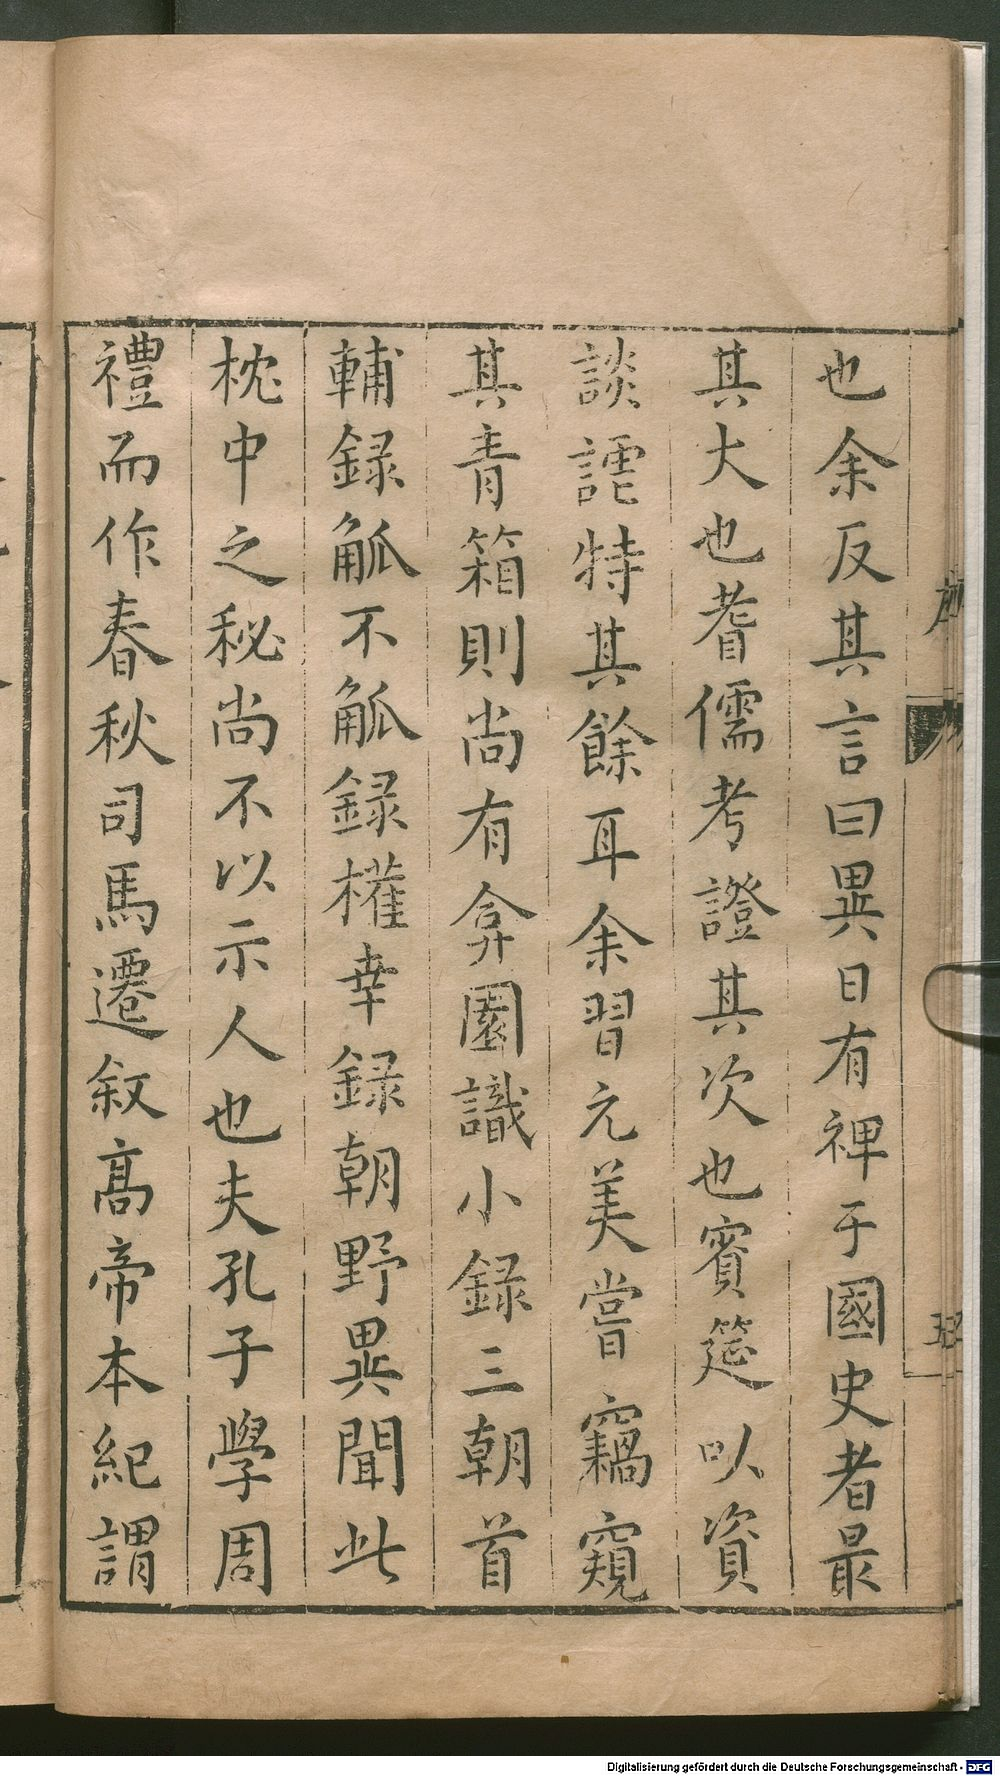 也余反其言曰異日有裨于國史者最
其大也耆儒考證其次也賓筵以資
談謔特其餘耳余習元美嘗竊窺
其青箱則尚有弇園識小録三朝首
輔録觚不觚録權幸録朝野異聞此
枕中之秘尚不以示人也夫孔子學周
禮而作春秋司馬遷敘高帝本紀謂
Digitalisierung gefördert durch die Deutsche Forschungsgemeinschaft - DFG